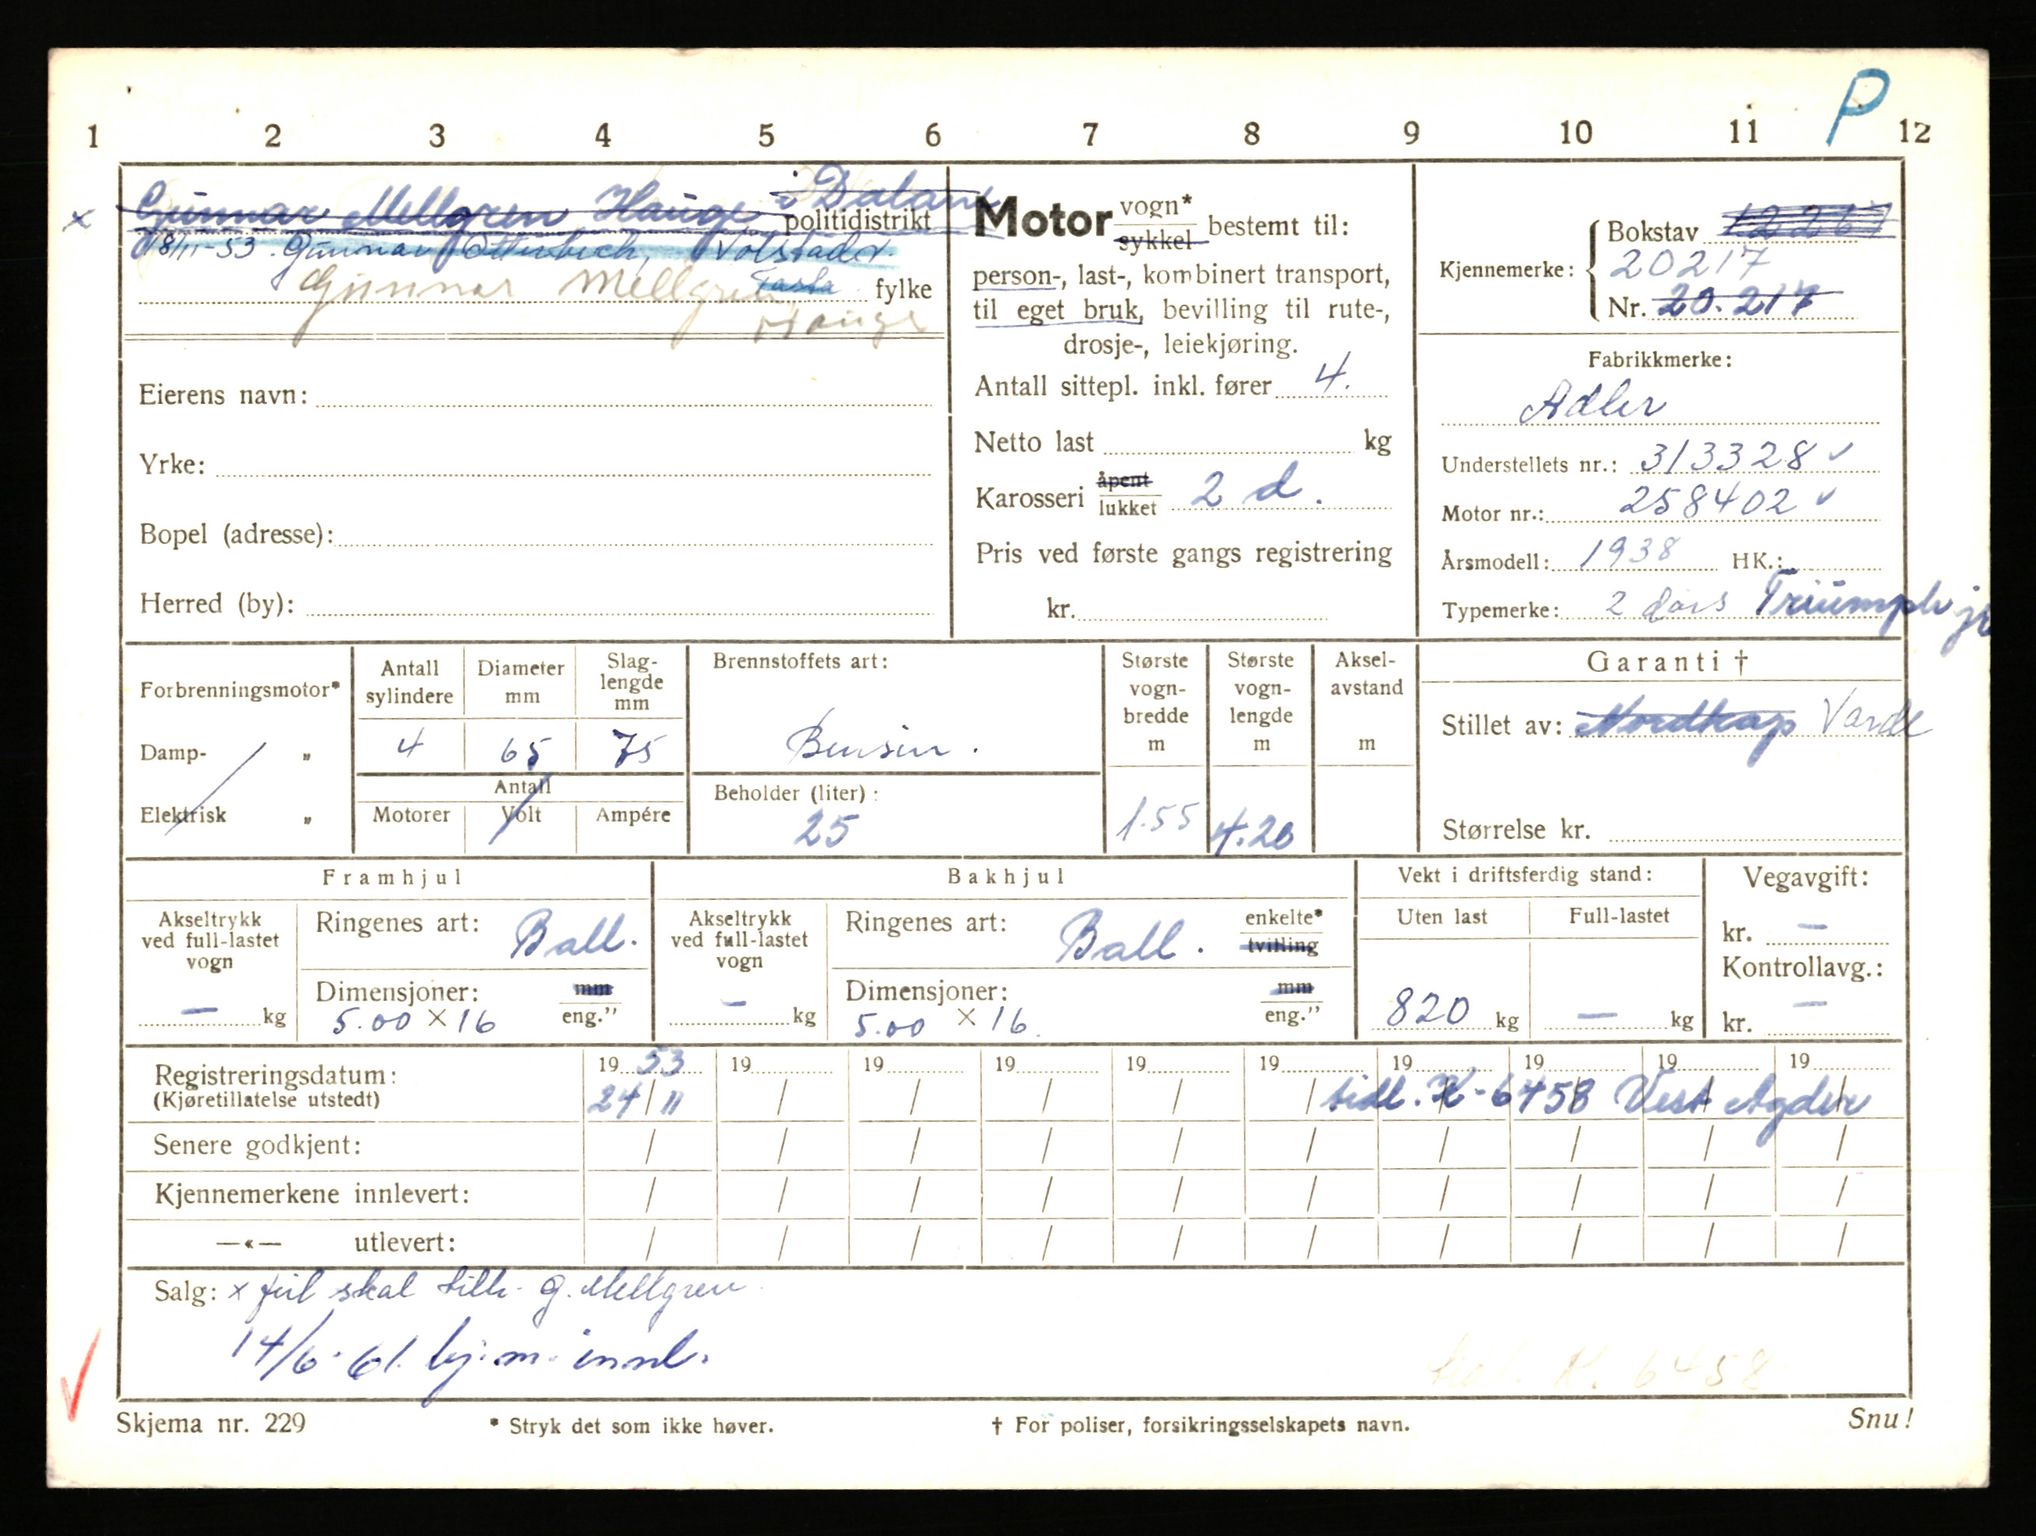 P
1 2 3 4 5 6 7 8 9 10 11 12
x Gunnar Mellgren Hauge i Dalane
politidistrikt
18/11-53. Gunnar Otterbech, Volstadv.
Tasta
Gunnar Mellgren fylke
Hauge
Eierens navn:
Yrke:
Bopel (adresse):
Herred (by):
Motor vogn* sykkel bestemt til:
person-, last-, kombinert transport,
til eget bruk, bevilling til rute-,
drosje-, leiekjøring.
Antall sittepl. inkl. fører 4.
Netto last kg
Karosseri åpent lukket 2 d.
Pris ved første gangs registrering
kr.
Kjennemerke: Bokstav
20217
Nr. 20.217
Fabrikkmerke:
Adler
Understellets nr.: 313328 ✓
Motor nr.: 258402 ✓
Årsmodell: 1938 HK.:
Typemerke: 2 dørs Triumph jr
Forbrenningsmotor*
Damp- "
Elektrisk "
Antall sylindere
4
Diameter mm
65
Slag-lengde mm
75
Antall
Motorer Volt Ampére
Brennstoffets art:
Bensin.
Beholder (liter):
25
Største vogn-bredde m
1.55
Største vogn-lengde m
4.20
Aksel-avstand m
Garanti †
Stillet av: Nordkap Varde
Størrelse kr.
Framhjul
Akseltrykk ved full-lastet vogn
— kg
Ringenes art: Ball.
Dimensjoner: mm
5.00 × 16 eng."
Bakhjul
Akseltrykk ved full-lastet vogn
— kg
Ringenes art: Ball. enkelte* tvilling
Dimensjoner: mm
5.00 × 16. eng."
Vekt i driftsferdig stand:
Uten last Full-lastet
820 kg — kg
Vegavgift:
kr. —
Kontrollavg.:
kr. —
Registreringsdatum: 19 53 19 19 19 19 19 19 19 19 19
(Kjøretillatelse utstedt) 24/11 / / / / tidl. K-6458 Vest Agder
Senere godkjent: / / / / / / / / / /
Kjennemerkene innlevert: / / / / / / / / / /
—«— utlevert: / / / / / / / / / /
Salg: x feil skal tilh. G. Mellgren
14/6-61. kj.m. innl.
K. 6458
✓
Skjema nr. 229 * Stryk det som ikke høver. † For poliser, forsikringsselskapets navn. Snu!